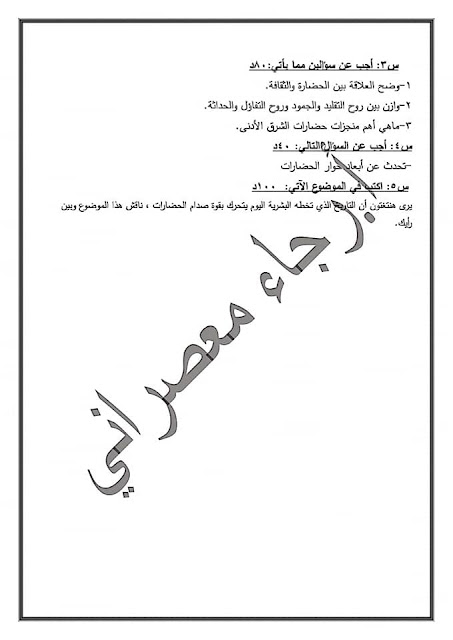 س٣: أجب عن سؤالين مما يأتي: ٨٠د
١-وضح العلاقة بين الحضارة والثقافة.
٢-وازن بين روح التقليد والجمود وروح التفاؤل والحداثة.
٣-ماهي أهم منجزات حضارات الشرق الأدنى.
س٤: أجب عن السؤال التالي: ٤٠د
-تحدث عن أبعاد حوار الحضارات
س٥: اكتب في الموضوع الآتي: ١٠٠د
يرى هنتغتون أن التاريخ الذي تخطه البشرية اليوم يتحرك بقوة صدام الحضارات ، ناقش هذا الموضوع وبين
رأيك.
أ. رجاء معصراني